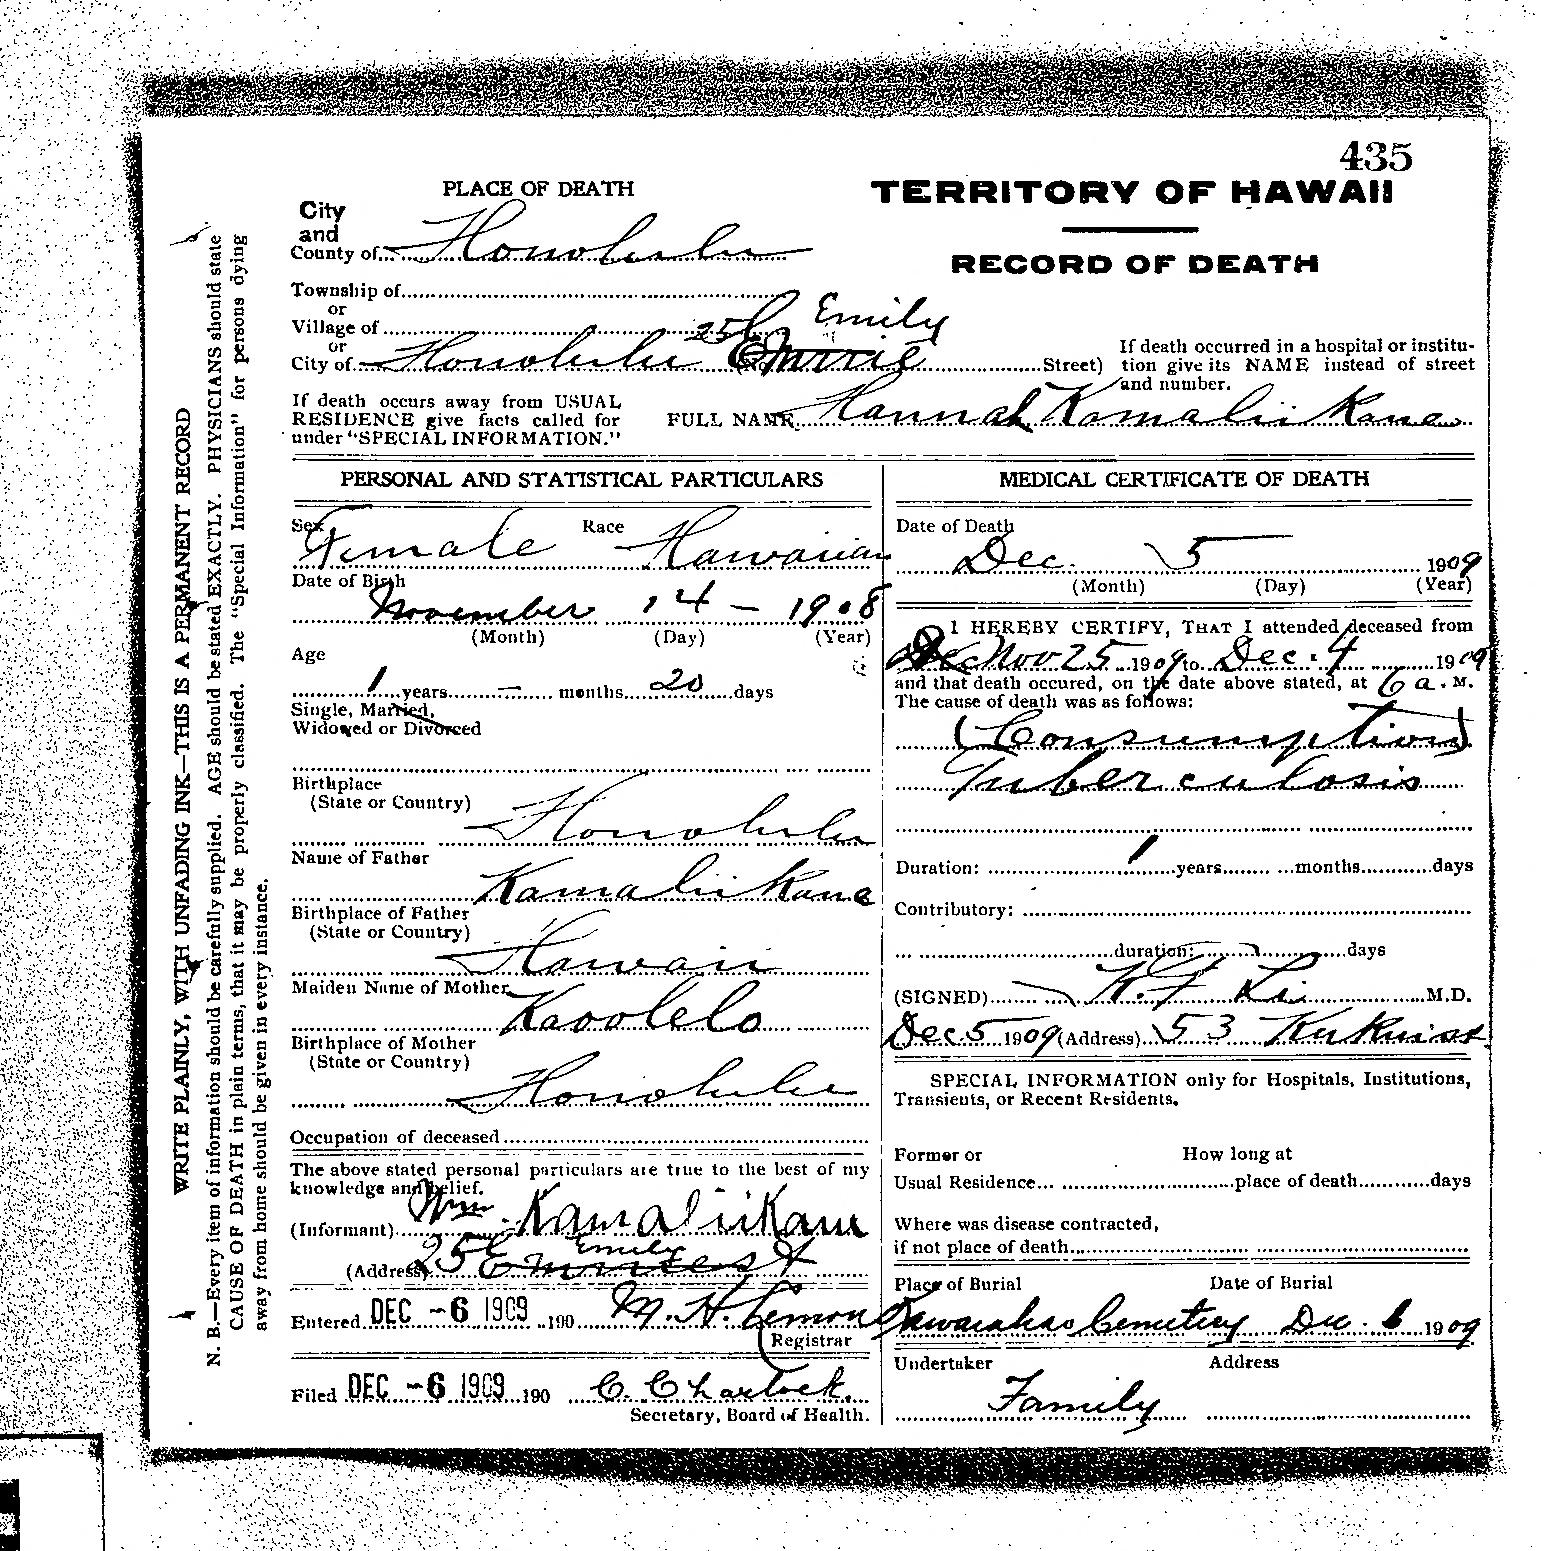 435
PLACE OF DEATH
TERRITORY OF HAWAII
City
and
County of Honolulu
RECORD OF DEATH
Township of
or
Village of
or
City of Honolulu 25 Emily Street)
If death occurred in a hospital or institu-
tion give its NAME instead of street
and number.
If death occurs away from USUAL
RESIDENCE give facts called for
under "SPECIAL INFORMATION."
FULL NAME Hannah Kamaliikane
WRITE PLAINLY, WITH UNFADING INK—THIS IS A PERMANENT RECORD
N. B.—Every item of information should be carefully supplied. AGE should be stated EXACTLY. PHYSICIANS should state
CAUSE OF DEATH in plain terms, that it may be properly classified. The "Special Information" for persons dying
away from home should be given in every instance.
PERSONAL AND STATISTICAL PARTICULARS
Sex Female Race Hawaiian
Date of Birth
November 14 - 1908
(Month) (Day) (Year)
Age
1 years - months 20 days
Single, Married,
Widowed or Divorced
Birthplace
(State or Country)
Honolulu
Name of Father
Kamaliikane
Birthplace of Father
(State or Country)
Hawaii
Maiden Name of Mother
Kaoolelo
Birthplace of Mother
(State or Country)
Honolulu
Occupation of deceased
The above stated personal particulars are true to the best of my
knowledge and belief.
(Informant) Wm. Kamaliikane
(Address) 25 Emily st
Entered DEC -6 1909 190 M. H. Lemon
Registrar
Filed DEC -6 1909 190 C. Charlock.
Secretary, Board of Health.
MEDICAL CERTIFICATE OF DEATH
Date of Death
Dec. 5 1909
(Month) (Day) (Year)
I HEREBY CERTIFY, THAT I attended deceased from
Nov 25 1909 to Dec. 4 1909
and that death occured, on the date above stated, at 6 a. M.
The cause of death was as follows:
(Consumption)
Tuberculosis
Duration: 1 years months days
Contributory:
duration: days
(SIGNED) K. F. Li M.D.
Dec. 5 1909 (Address) 53 Kukui st
SPECIAL INFORMATION only for Hospitals, Institutions,
Transients, or Recent Residents.
Former or How long at
Usual Residence place of death days
Where was disease contracted,
if not place of death
Place of Burial Date of Burial
Cemetery Dec. 6 1909
Undertaker Address
Family